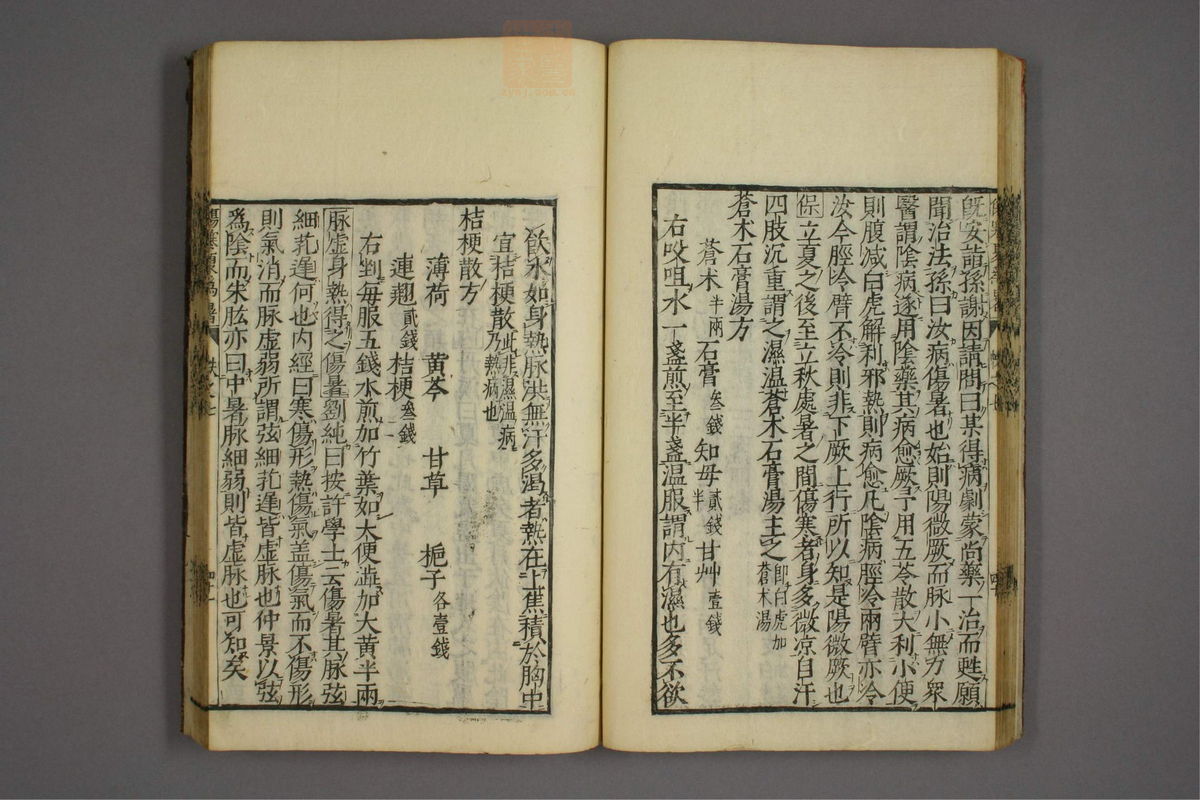 既安詣孫謝因請問曰某得病劇蒙尚藥一治而甦願
聞治法孫曰汝病傷暑也始則陽微厥而脉小無力眾
醫謂陰病遂用陰藥其病愈厥予用五苓散大利小便
則腹减曰虎解利邪熱則病愈凡陰病脛冷兩臂亦冷
汝今脛冷臂不冷則非下厥上行所以知是陽微厥也
保立夏之後至立秋處暑之間傷寒者身多微凉自汗
四肢沉重謂之濕温蒼术石膏湯主之即白虎加蒼术湯
蒼术石膏湯方
蒼术半兩石膏叁錢知母貳錢半甘艸壹錢
右㕮咀水一盞煎至半盞温服謂内有濕也多不欲
飲水如身熱脉洪無汗多渴者熱在上焦積於胸中
宜桔梗散此非濕温病乃熱病也
桔梗散方
薄荷 黄芩 甘草 梔子各壹錢
連翹貳錢桔梗叁錢
右剉毎服五錢水煎加竹葉如大便澁加大黄半兩
脉虚身熱得之傷暑劉純曰按許學士云傷暑其脉弦
細芤遲何也内經曰寒傷形熱傷氣盖傷氣而不傷形
則氣消而脉虚弱所謂弦細芤遲皆虚脉也仲景以弦
爲陰而朱肱亦曰中暑脉細弱則皆虚脉也可知矣